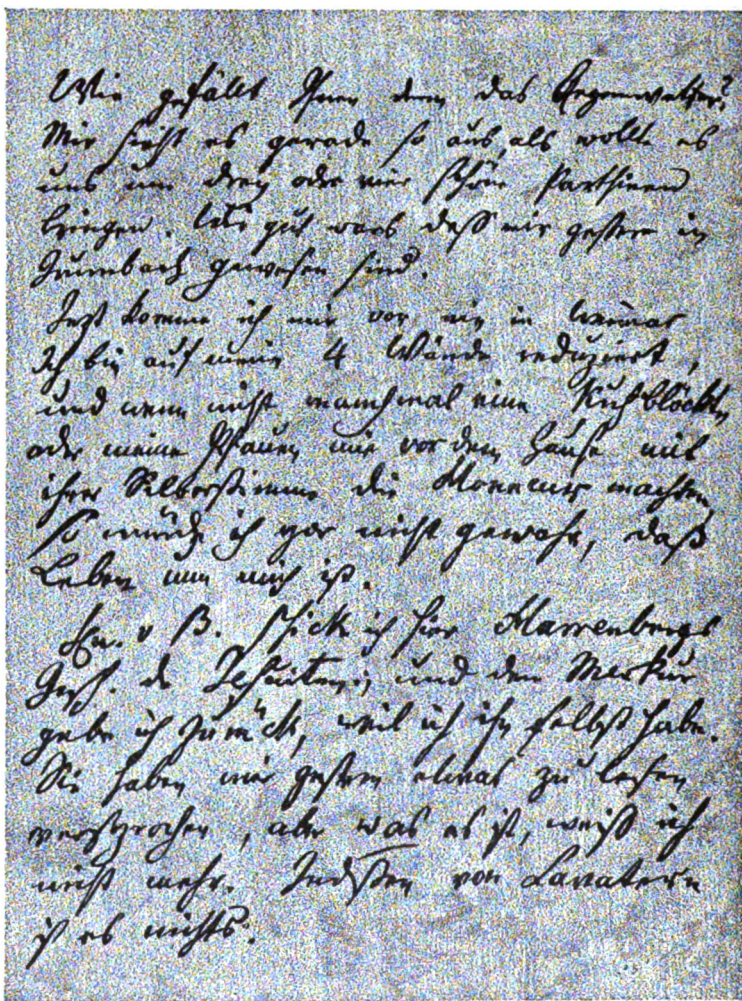 Wie gefällt Ihnen denn das Regenwetter?
Mir sieht es gerade so aus, als wollte es
uns um drey oder vier schöne Parthieen
bringen. Wie gut wars daß wir gestern in
Grumbach gewesen sind.
Jezt komme ich mir vor wie in Weimar
Ich bin auf meine 4 Wände reduziert,
und wenn nicht manchmal eine Kuh blöckte,
oder meine Pfauen mir vor dem Hause mit
ihrer Silberstimme die Honneurs machten,
so würde ich gar nicht gewahr, daß
Leben um mich ist.
Hn. v B. schicke ich hier Harrenbergs
Gesch. der Jesuiten; und den Merkur
gebe ich zurück, weil ich ihn selbst habe.
Sie haben mir gestern etwas zu lesen
versprochen, aber was es ist, weiß ich
nicht mehr. Indessen von Lavatern
ist es nichts.